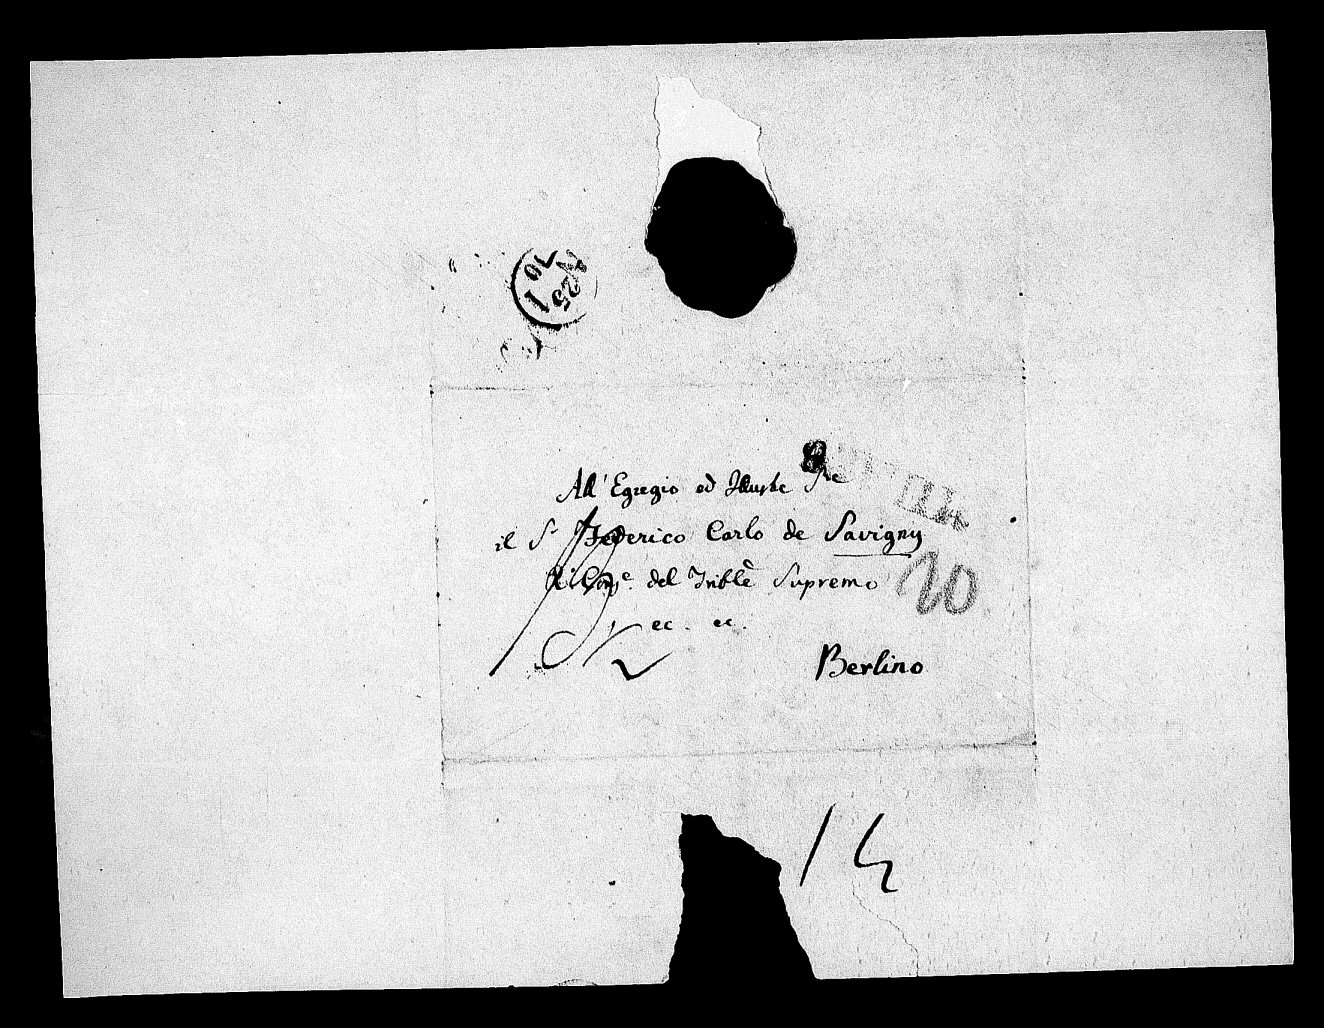 N 25
1
All' Egregio ed Illustre Sre
il Sr Federico Carlo de Savigny
Conse. del Trible Supremo
ec. ec.
20
Berlino
14